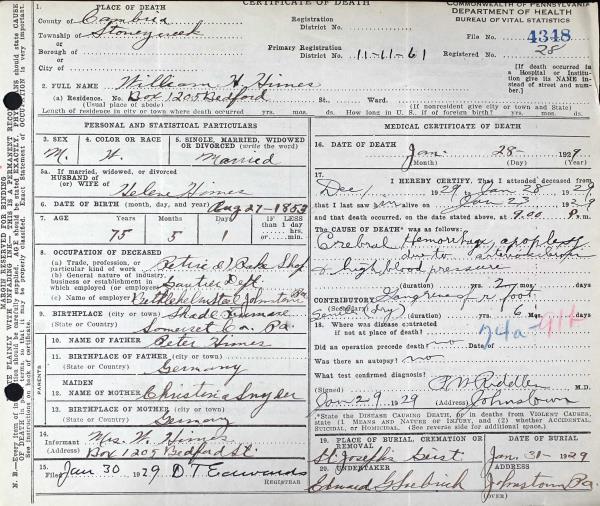 CERTIFICATE OF DEATH
COMMONWEALTH OF PENNSYLVANIA
DEPARTMENT OF HEALTH
BUREAU OF VITAL STATISTICS
1. PLACE OF DEATH
County of Cambria
Township of Stoneycreek
or
Borough of
or
City of
Registration District No.
Primary Registration District No. 11-11-61
File No. 4348
Registered No. 28
[If death occurred in a Hospital or Institution give its NAME instead of street and number.]
2. FULL NAME William H Himes
(a) Residence. No. Box 1205 Bedford St. Ward.
(Usual place of abode) (If nonresident give city or town and State)
Length of residence in city or town where death occurred yrs. mos. ds. How long in U. S., if of foreign birth? yrs. mos. ds.
PERSONAL AND STATISTICAL PARTICULARS
3. SEX M. 4. COLOR OR RACE W. 5. SINGLE, MARRIED, WIDOWED OR DIVORCED (write the word) Married
5a. If married, widowed, or divorced
HUSBAND of
(or) WIFE of Helene Himes
6. DATE OF BIRTH (month, day, and year) Aug 27-1853
7. AGE Years Months Days If LESS than 1 day hrs. or min.
75 5 1
8. OCCUPATION OF DECEASED
(a) Trade, profession, or particular kind of work
(b) General nature of industry, business or establishment in which employed (or employer) Gautier Dept
(c) Name of employer Bethlehem Steel Johnstown Pa
9. BIRTHPLACE (city or town)
(State or Country) Somerset Co. Pa.
PARENTS
10. NAME OF FATHER Peter Himes
11. BIRTHPLACE OF FATHER (city or town)
(State or Country) Germany
12. MAIDEN NAME OF MOTHER Christenia Snyder
13. BIRTHPLACE OF MOTHER (city or town)
(State or Country) Germany
14. Informant Mrs. W. Himes
(Address) Box 1205 Bedford St.
15. Filed Jan 30 1929 D T Edwards
REGISTRAR
MEDICAL CERTIFICATE OF DEATH
16. DATE OF DEATH Jan. 28- 1929
(Month) (Day) (Year)
17. I HEREBY CERTIFY, That I attended deceased from
Dec 1 1929 to Jan 28 1929
that I last saw him alive on Jan 23 1929
and that death occurred, on the date stated above, at 9.00 P m.
The CAUSE OF DEATH* was as follows:
Cerebral Hemorrhage apoplexy
due to arteriosclerosis
& high blood pressure
(duration) yrs. 2 mos. days
CONTRIBUTORY Gangrene of r foot
(Secondary)
(duration) yrs. 6 mos. days
18. Where was disease contracted if not at place of death?
74a-91b
Did an operation precede death? no Date of
Was there an autopsy? no
What test confirmed diagnosis?
(Signed) F. W. Riddle M.D.
Jan 29 1929 (Address) Johnstown
*State the DISEASE CAUSING DEATH, or in deaths from VIOLENT CAUSES, state (1) MEANS AND NATURE OF INJURY, and (2) whether ACCIDENTAL, SUICIDAL, or HOMICIDAL. (See reverse side for additional space.)
19. PLACE OF BURIAL, CREMATION OR REMOVAL DATE OF BURIAL
St. Josephs Jan. 31-1929
20. UNDERTAKER ADDRESS
Johnstown Pa.
(OVER)
MARGIN RESERVED FOR BINDING